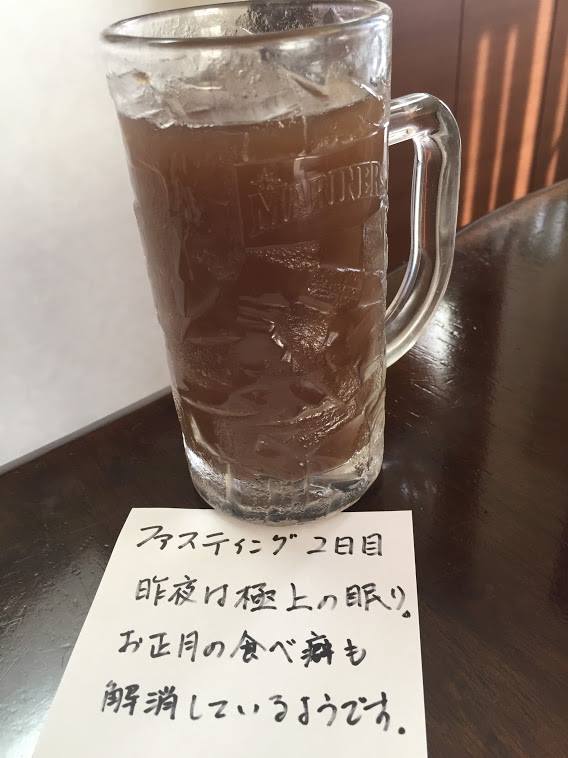 ファスティング2日目
昨夜は極上の眠り。
お正月の食べ癖も
解消しているようです。